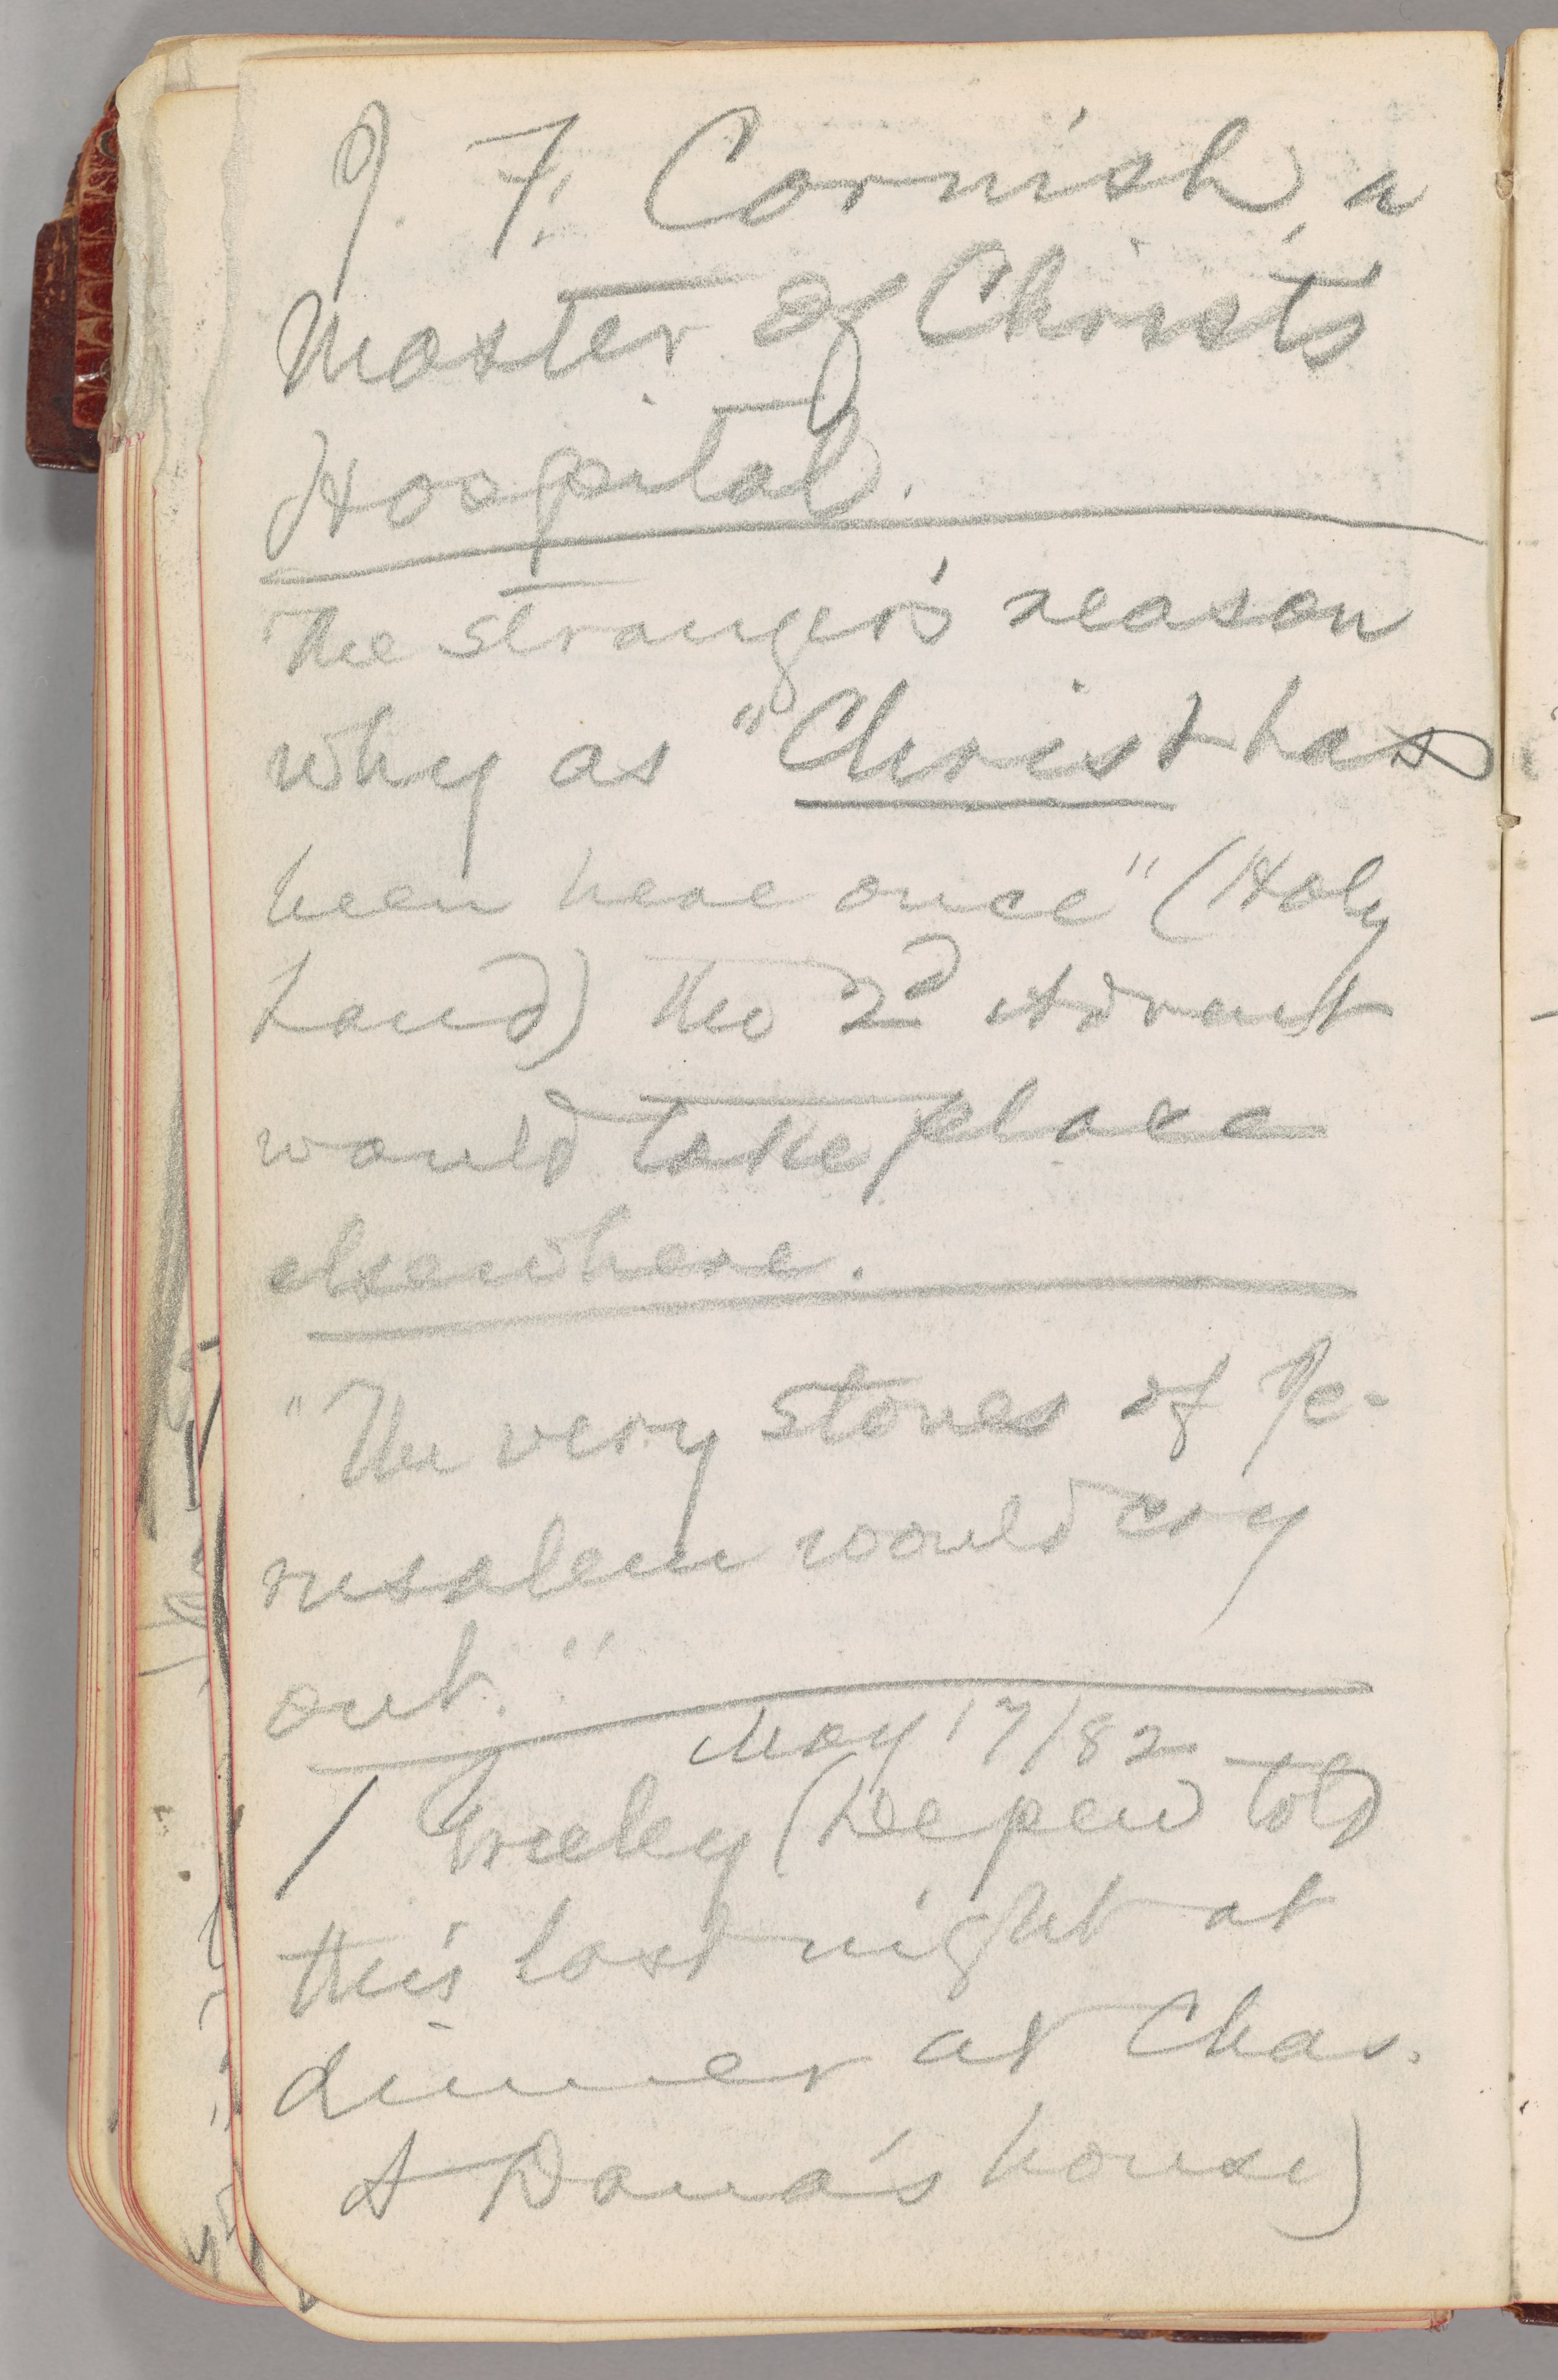 J. F. Cornish, a
Master of Christ's
Hospital.
The stranger's reason
why as "Christ has
been here once" (Holy
Land) the 2d Advent
would take place
elsewhere.
"The very stones of Je-
rusalem would cry
out."
May 17/82
/ Greeley (Depew told
this last night at
dinner at Chas.
A Dana's house)